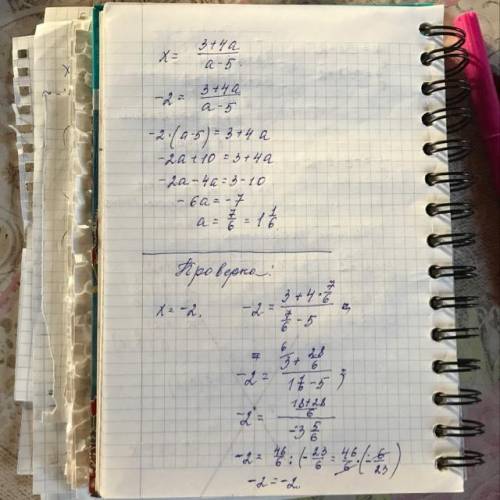 x = (3+4a)/(a-5)
-2 = (3+4a)/(a-5)
-2·(a-5) = 3+4a
-2a+10 = 3+4a
-2a-4a = 3-10
-6a = -7
a = 7/6 = 1 1/6
Проверка:
x = -2, -2 = (3+4·7/6)/(7/6-5)
-2 = (3+28/6)/(1 1/6-5);
-2 = ((18+28)/6)/(-3 5/6)
-2 = 46/6 : (-23/6 = 46/6·(-6/23)
-2 = -2